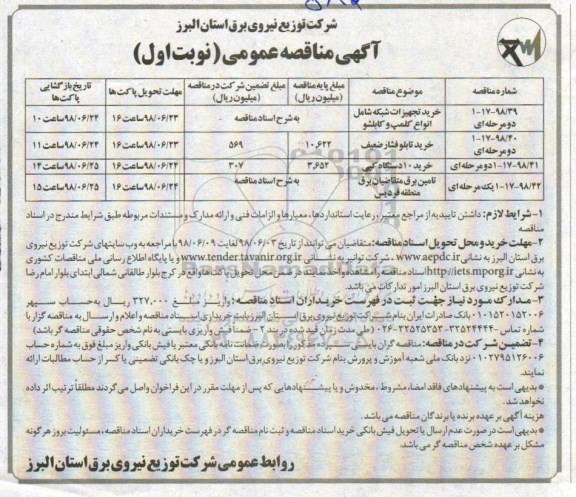 شرکت توزیع نیروی برق استان البرز
آگهی مناقصه عمومی (نوبت اول)
شماره مناقصه	موضوع مناقصه	مبلغ پایه مناقصه (میلیون ریال)	مبلغ تضمین شرکت در مناقصه (میلیون ریال)	مهلت تحویل پاکت ها	تاریخ بازگشایی پاکت ها
۱-۱۷-۹۸/۳۹ دو مرحله ای	خرید تجهیزات شبکه شامل انواع کلمپ و کابلشو	به شرح اسناد مناقصه	۹۸/۰۶/۲۳ ساعت ۱۶	۹۸/۰۶/۲۴ ساعت ۱۰
۱-۱۷-۹۸/۴۰ دو مرحله ای	خرید تابلو فشار ضعیف	۱۰,۶۲۲	۵۶۹	۹۸/۰۶/۲۳ ساعت ۱۶	۹۸/۰۶/۲۴ ساعت ۱۱
۱-۱۷-۹۸/۴۱ دو مرحله ای	خرید ۱۰ دستگاه	۳,۶۵۲	۳۰۷	۹۸/۰۶/۲۴ ساعت ۱۶	۹۸/۰۶/۲۵ ساعت ۱۴
۱-۱۷-۹۸/۴۲ یک مرحله ای	تامین برق متقاضیان برق منطقه فردیس	به شرح اسناد مناقصه	۹۸/۰۶/۲۴ ساعت ۱۶	۹۸/۰۶/۲۵ ساعت ۱۵
۱- شرایط لازم: داشتن تاییدیه از مراجع معتبر، رعایت استانداردها، معیارها و الزامات فنی و ارائه مدارک و مستندات مربوطه طبق شرایط مندرج در اسناد
مناقصه
۲- مهلت خرید و محل تحویل اسناد مناقصه: متقاضیان می توانند از تاریخ ۹۸/۰۶/۰۳ لغایت ۹۸/۰۶/۰۹ با مراجعه به وب سایتهای شرکت توزیع نیروی
برق استان البرز به نشانی www.aepdc.ir ، شرکت توانیر به نشانی www.tender.tavanir.org.ir و یا پایگاه اطلاع رسانی ملی مناقصات کشوری
به نشانی http://iets.mporg.ir اسناد مناقصه را مشاهده و محل تحویل پاکت ها واقع در کرج بلوار طالقانی شمالی ابتدای بلوار امام رضا
شرکت توزیع نیروی برق استان البرز امور تدارکات می باشد.
۳- مدارک مورد نیاز جهت ثبت در فهرست خریداران اسناد مناقصه: واریز مبلغ ۳۲۷,۰۰۰ ریال به حساب سپهر
۰۱۰۱۵۲۰۱۵۲۰۰۶ بانک صادرات ایران بنام شرکت توزیع نیروی برق استان البرز بابت خریداری اسناد مناقصه و اعلام و ارسال به مناقصه گزار با
شماره تماس ۳۲۵۲۴۴۴۴-۳۲۵۲۵۳۵۳-۰۲۶ (طی مدت زمان قید شده در بند ۲ - ضمنا فیش واریزی بایستی به نام شخص حقوقی مناقصه گر باشد)
۴- تضمین شرکت در مناقصه: مناقصه گران بایستی سپرده مذکور را بصورت ضمانت نامه بانکی معتبر یا فیش بانکی واریز مبلغ فوق به شماره حساب
۰۱۰۲۷۹۵۱۲۶۰۰۶ نزد بانک ملی شعبه آموزش و پرورش بنام شرکت توزیع نیروی برق استان البرز و یا چک بانکی تضمینی یا کسر از حساب مطالبات ارائه
نمایند.
* بدیهی است به پیشنهادهای فاقد امضا، مشروط، مخدوش و یا پیشنهادهایی که پس از مهلت مقرر در این فراخوان واصل می گردند مطلقا ترتیب اثر داده
نخواهد شد.
هزینه آگهی بر عهده برنده یا برندگان مناقصه می باشد.
* بدیهی است در صورت عدم ارسال یا تحویل فیش بانکی خرید اسناد مناقصه و ثبت نام مناقصه گر در فهرست خریداران اسناد مناقصه، مسئولیت بروز هر گونه
مشکل بر عهده شخص مناقصه گر می باشد.
روابط عمومی شرکت توزیع نیروی برق استان البرز